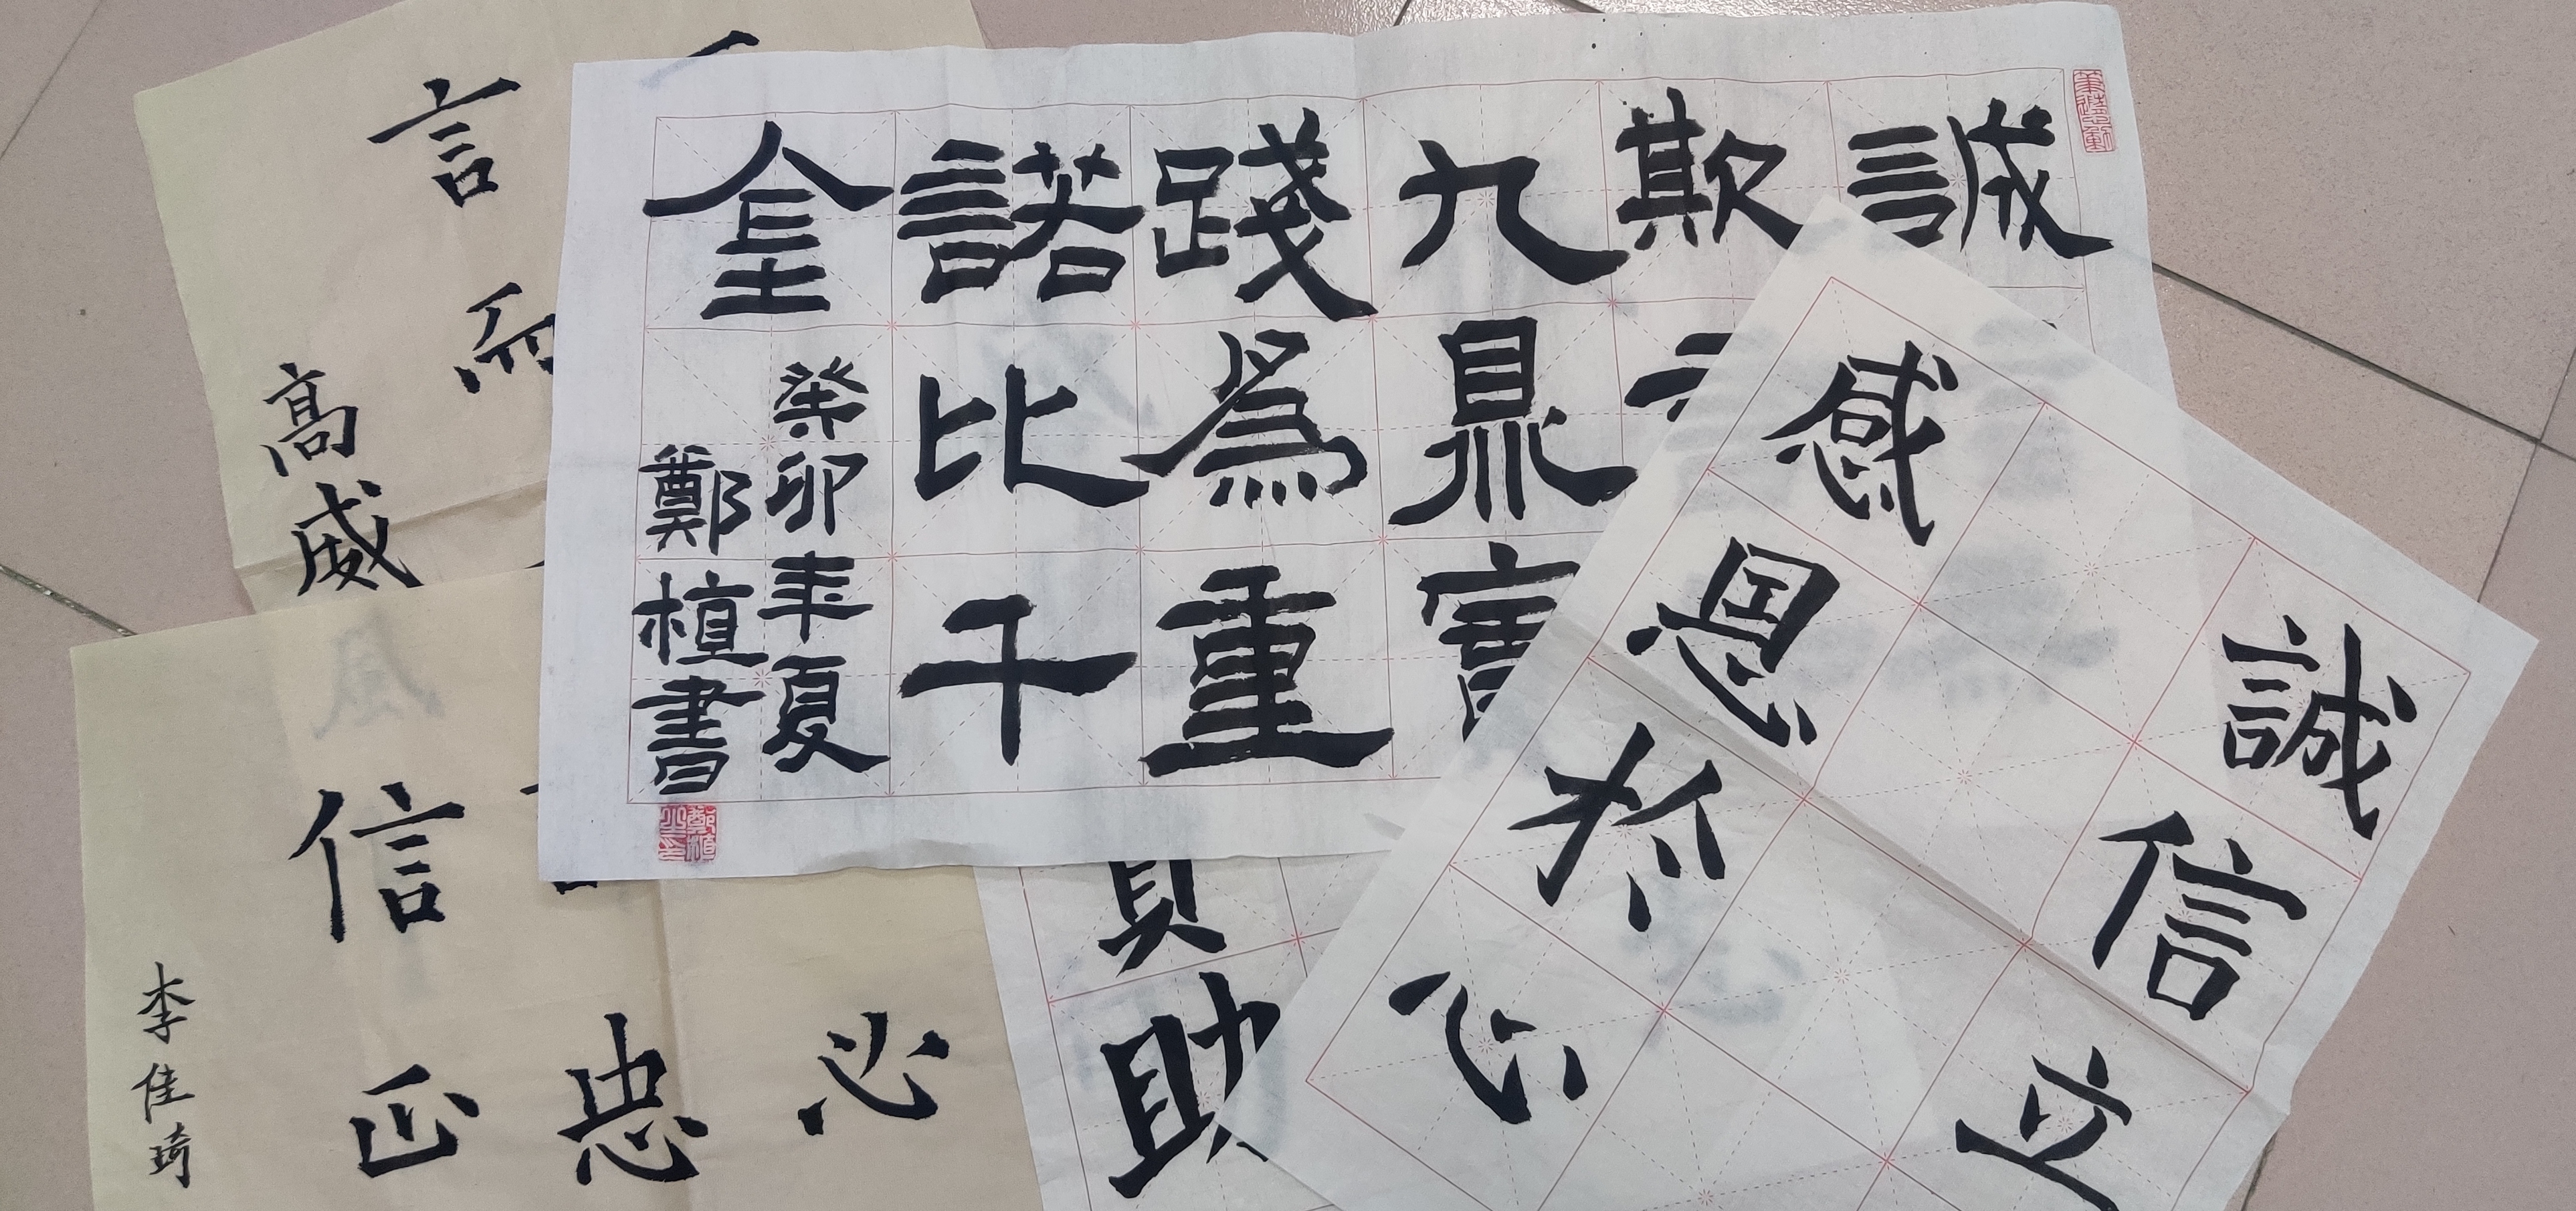 誠
欺
九鼎寶
踐為重
諾比千
金
癸卯年夏
鄭植書
鄭植之印
誠信立
感恩於心
助
言而
高威
忠
信
李佳琦